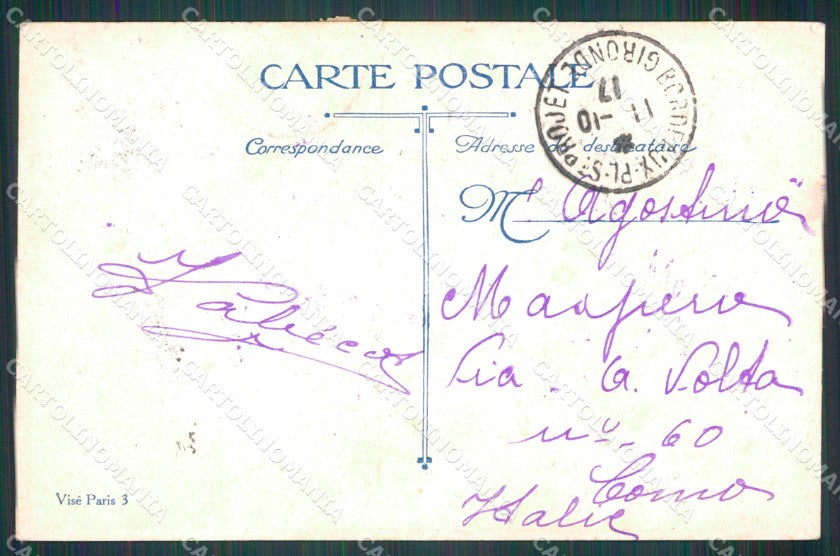 CARTE POSTALE
Correspondance
Adresse du destinataire
BORDEAUX-PL-ST PROJET GIRONDE
17
11 -10
M Agostino
Via A. Volta
n° 60
Como
Italie
Visé Paris 3
CARTOLINOMANIA